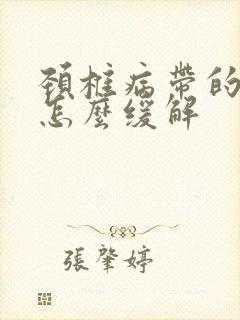 頚椎病帶的
怎麼缓解
張肇婷